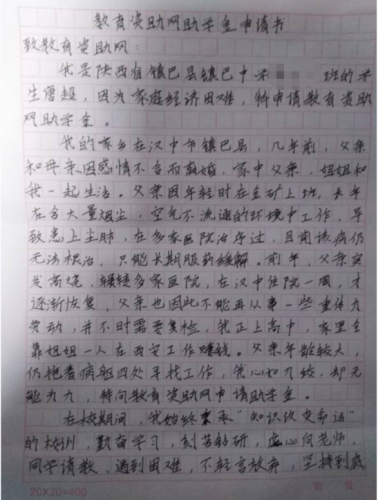 教育资助网助学金申请书
致教育资助网:
我是陕西省镇巴县镇巴中学 班的学
生唐超,因为家庭经济困难,特申请教育资助
网助学金。
我的家乡在汉中市镇巴县,几年前,父亲
和母亲因感情不合而离婚,家中父亲,姐姐和
我一起生活。父亲因年轻时在金矿上班,长年
在含大量烟尘,空气不流通的环境中工作,导
致患上尘肺,在多家医院治疗过,目前该病仍
无法根治,只能长期服药缓解。前年,父亲突
发高烧,辗转多家医院,在汉中住院一周,才
逐渐恢复,父亲也因此不能再从事一些重体力
劳动,并不时需要复检,我正上高中,家里全
靠姐姐一人在西安工作赚钱。父亲年龄较大,
仍拖着病躯四处寻找工作,我心如刀绞,却无
能为力,特向教育资助网申请助学金。
在校期间,我始终秉承“知识改变命运”
的校训,勤奋学习,刻苦钻研,虚心向老师,
同学请教,遇到困难,不轻言放弃,坚持到底
20X20=400